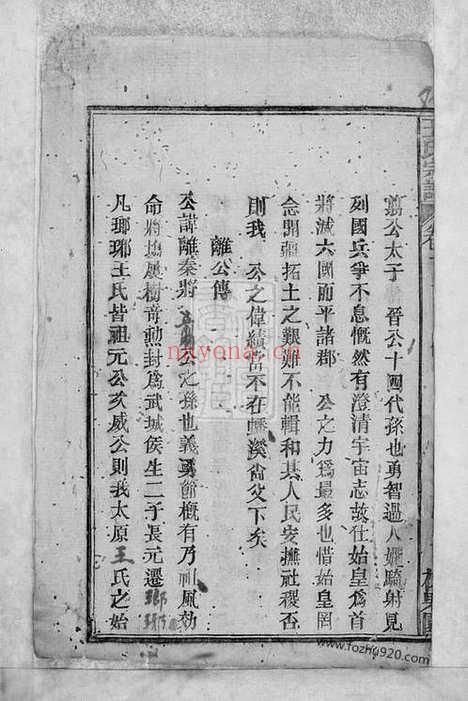 王氏宗譜
翦公太子晉公十四代孫也勇智過人嫺騎射見
列國兵爭不息慨然有澄清宇宙志故仕始皇爲首
將滅六國而平諸郡 公之力爲最多也惜始皇罔
念開疆拓土之艱難不能輯和其人民安撫社稷否
則我 公之偉績當不在磻溪尙父下矣
離公傳
公諱離秦將公之孫也義勇節概有乃祖風効
命將塲屢樹奇勲封爲武城侯生二子長元遷瑯琊
凡瑯琊王氏皆祖元公次威公則我太原王氏之始
nayona.cn
www.fozhu920.com